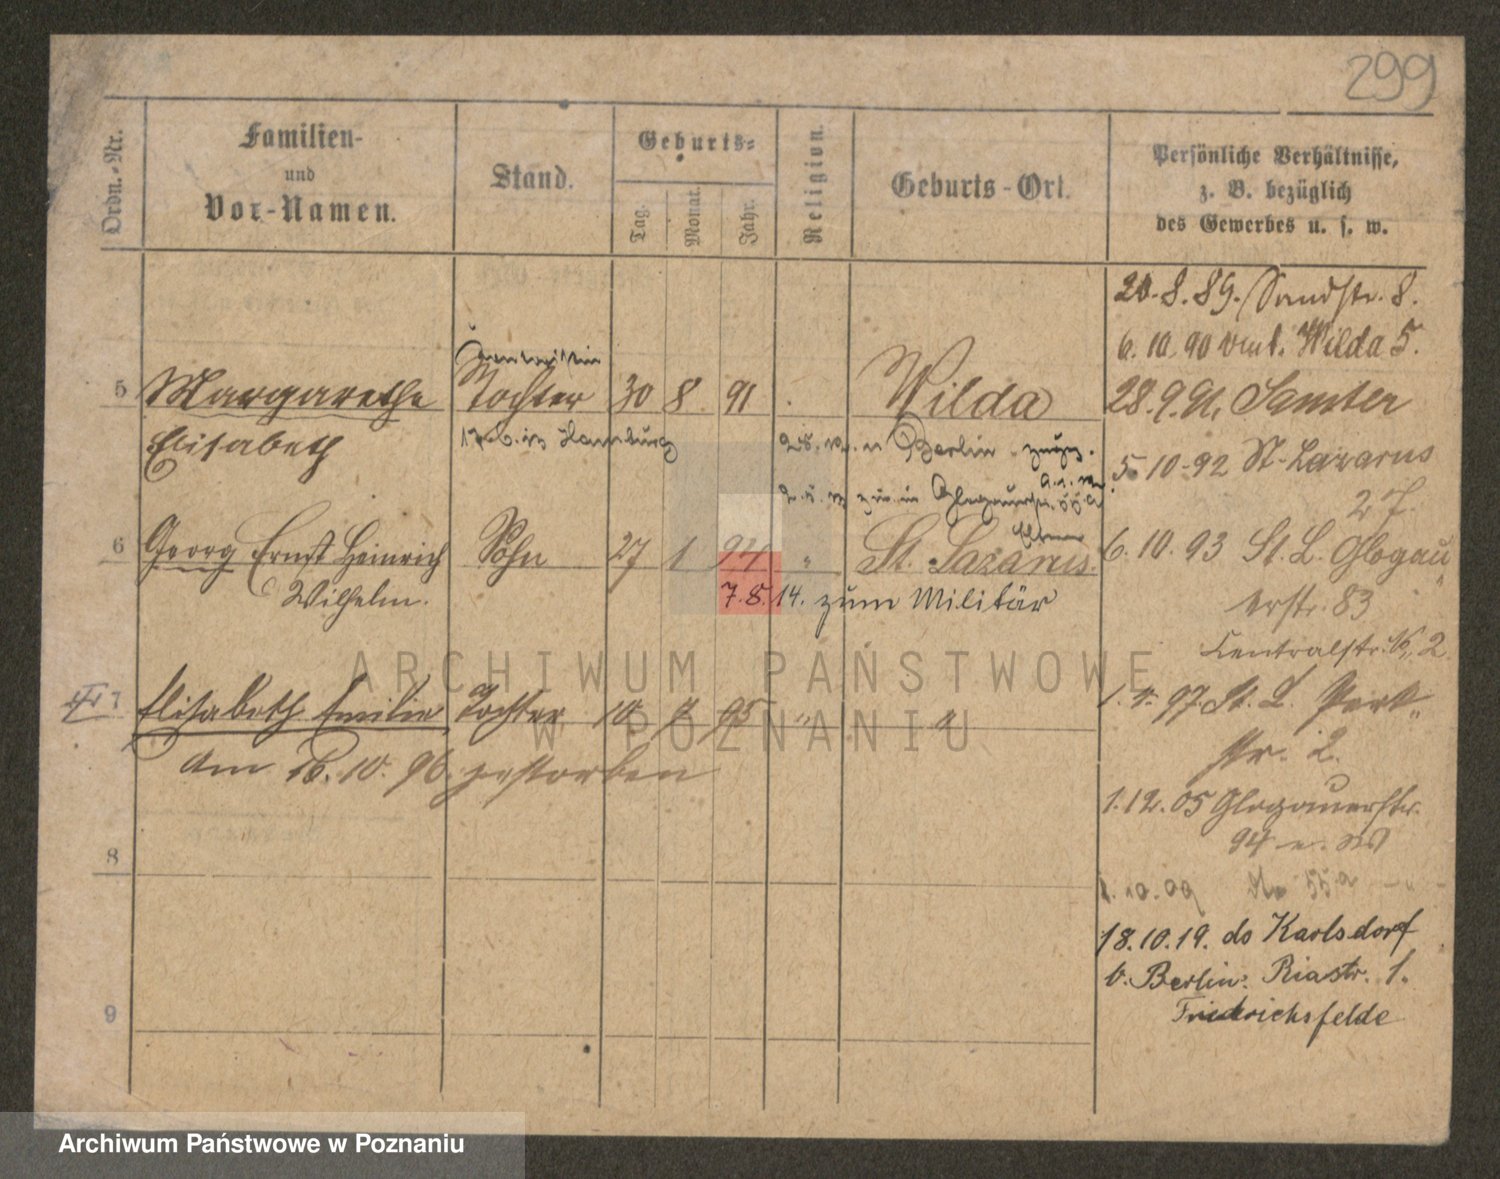 299
Ordn.-Nr.
Familien-
und
Vor-Namen.
Stand.
Geburts-
Tag.
Monat.
Jahr.
Religion.
Geburts-Ort.
Persönliche Verhältnisse,
z. B. bezüglich
des Gewerbes u. s. w.
20.8.89. Sandstr. 8.
6.10.90 Wilda 5.
5 Margarethe Tochter 30 8 91 Wilda
28.9.91. Samter
Elisabeth
Hamburg
Berlin
5.10.92 St. Lazarus
27.
6 Georg Ernst Heinrich Sohn 27 1 94 " St. Lazarus.
6.10.93 St. L. Glogau
Wilhelm.
7.8.14. zum Militär
erstr. 83
Centralstr. 2
7 Elisabeth Emilie Tochter 10 7 95 " "
1. 97 St. L. Park
str. 2.
am 16.10.96. gestorben
1.12.05 Glogauerstr.
94
8
1.10.09 55a
18.10.19. do Karlsdorf
b. Berlin: Riastr. 1.
Friedrichsfelde
9
ARCHIWUM PAŃSTWOWE
W POZNANIU
Archiwum Państwowe w Poznaniu